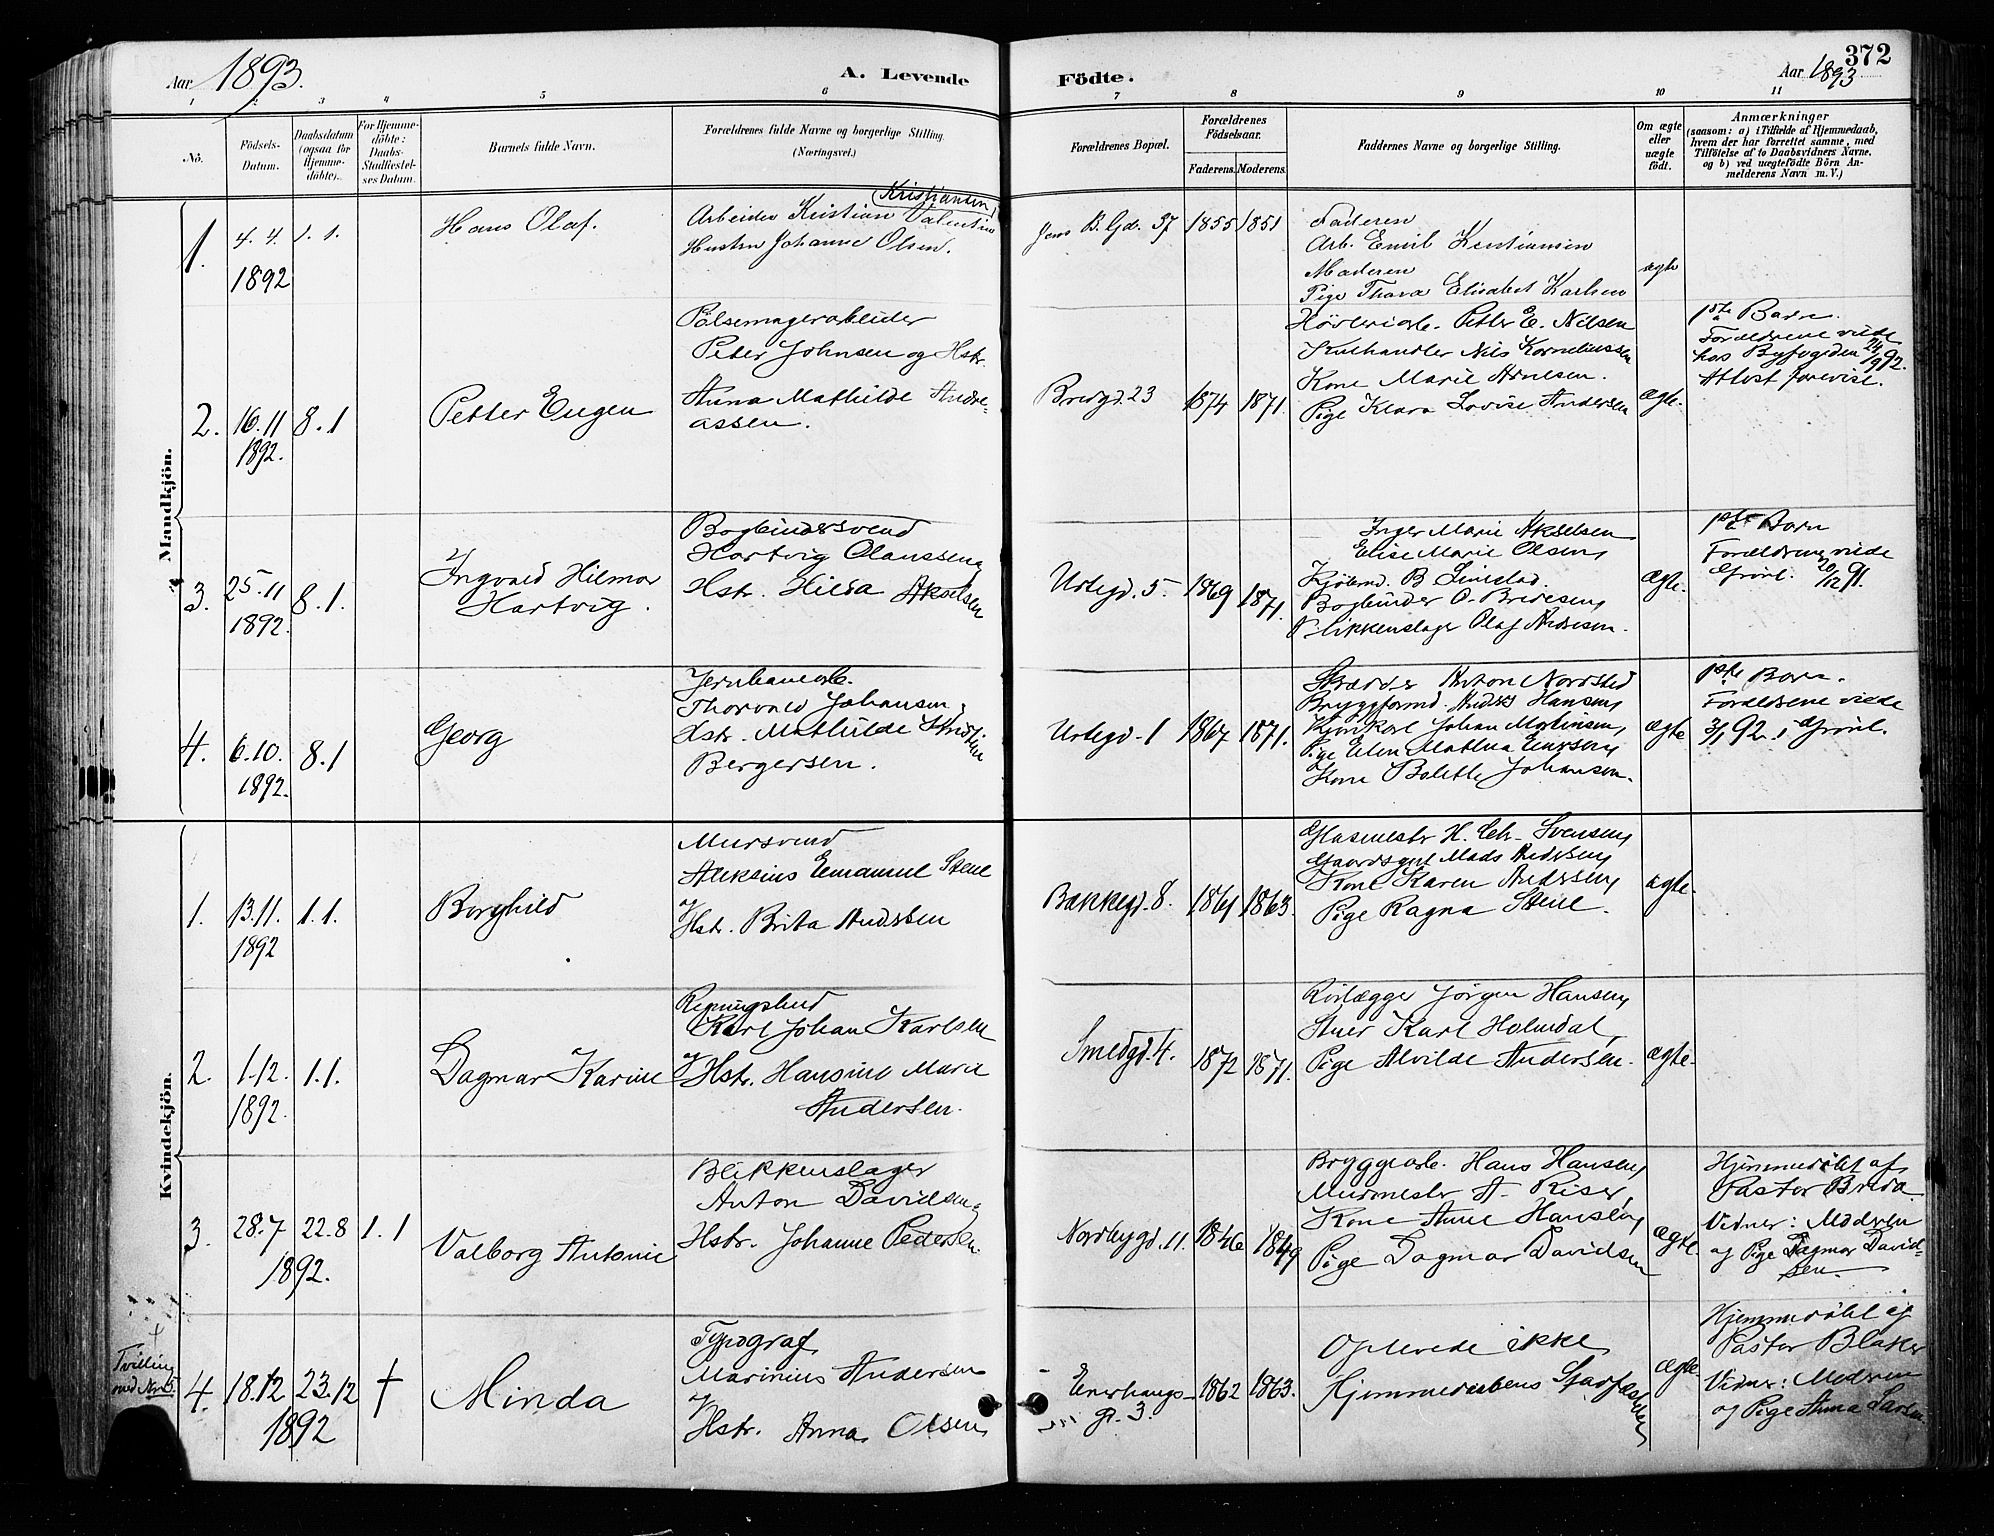 372
Aar 1893.
A. Levende Födte.
Aar 1893
1 2 3 4 5 6 7 8 9 10 11
Nö.
Födsels-Datum.
Daabsdatum (ogsaa for Hjemmedöbte).
For Hjemmedöbte: Daabs-Stadfæstelses Datum.
Barnets fulde Navn.
Forældrenes fulde Navne og borgerlige Stilling.
(Næringsvei.)
Forældrenes Bopæl.
Forældrenes Födselsaar.
Faderens. Moderens.
Faddernes Navne og borgerlige Stilling.
Om ægte eller uægte födt.
Anmærkninger
(saasom: a) i Tilfælde af Hjemmedaab,
hvem der har forrettet samme, med
Tilföielse af to Daabsvidners Navne,
og b) ved uægtefödte Börn Anmelderens Navn m. V.)
Mandkjön.
1.
4.4.
1892
1.1.
Hans Olaf.
Kristiansen
Arbeider Kristian Valentin
Hustru Johanne Olsen.
Jens B. Gd. 37
1855
1851
Faderen
Arb. Emil Kristiansen
Moderen
Pige Thora Elisabet Karlsen
ægte
2.
16.11
1892.
8.1
Petter Eugen
Pölsemagerarbeider
Peter Johnsen og Hstr.
Anna Mathilde Andre-
assen.
Bredgd. 23
1874
1871.
Høvleriarb. Petter E. Nilsen
Kulhandler Nils Korneliussen
Kone Marie Arnesen.
Pige Klara Lovise Andersen
ægte.
1ste Barn.
Forældrene viede
hos Byfogden 24/9 92.
Attest forevist.
3.
25.11
1892.
8.1.
Ingvald Hilmar
Hartvig.
Bogbindersvend
Hartvig Olaussen
Hstr. Hilda Akselsen
Urtegd. 5.
1869
1871.
Inger Marie Akselsen
Elise Marie Olsen,
Kjöbmd. B. Linstad.
Bogbinder O. Bredesen,
Blikkenslager Olaf Andersen.
Ægte.
1ste Barn
Forældrene viede
Grönl. 20/12 91.
4.
6.10.
1892.
8.1
Georg
Jernbanearb.
Thorvald Johansen,
Hstr. Mathilde Kristine
Bergersen.
Urtegd. 1
1867
1871.
Skrædder Anton Nordsted
Bryggeformd. Anders Hansen,
Kjörekarl Johan Mortinsen,
Pige Elen Mathea Enersen,
Kone Bolette Johansen.
ægte
1ste Barn.
Forældrene viede
3/1 92. i Grönl.
Kvindekjön.
1.
13.11.
1892
1.1.
Borghild
Mursvend
Aleksius Emanuel Stene
Hstr. Brita Andersen
Bakkegd. 8.
1861
1863.
Glasmester H. Chr. Svensen,
Gaardsgut Mads Andersen,
Kone Karen Andersen,
Pige Ragna Stene.
ægte.
2.
1.12.
1892.
1.1.
Dagmar Karine
Karl Johan Karlsen
Hstr. Hansine Marie
Andersen.
Smedgd. 4.
1872
1871.
Rörlægger Jörgen Hansen,
Stuer Karl Holmdal,
Pige Alvilde Andersen.
ægte.
3.
28.7 22.8
1892.
1.1
Valborg Antonie
Blikkenslager
Anton Davidsen
Hstr. Johanne Pedersen.
Nordbygd. 11.
1846
1849
Bryggearb. Hans Hansen,
Murmester A. Riser,
Kone Anne Hansen,
Pige Dagmar Davidsen
ægte.
Hjemmedöbt af
Pastor Breda
Vidner: Moderen
og Pige Dagmar David-
sen.
Tvilling
med No. 5.
4.
18.12 23.12
1892
†
Minda
Typograf
Marinius Andersen
Hstr. Anna Olsen
Enerhaugs-
gd. 3.
1862
1863.
Oplevede ikke
Hjemmedaabens Stadfæstelse
ægte.
Hjemmedöbt af
Pastor Blaker
Vidner: Moderen
og Pige Anna Larsen